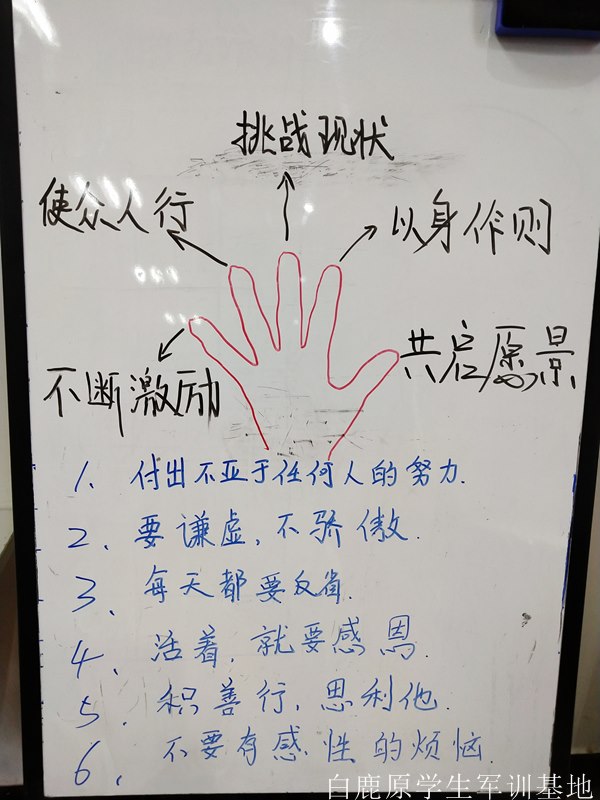 挑战现状
使众人行
以身作则
不断激励
共启愿景
1. 付出不亚于任何人的努力.
2. 要谦虚,不骄傲.
3. 每天都要反省.
4. 活着,就要感恩.
5. 积善行,思利他.
6. 不要有感性的烦恼.
白鹿原学生军训基地